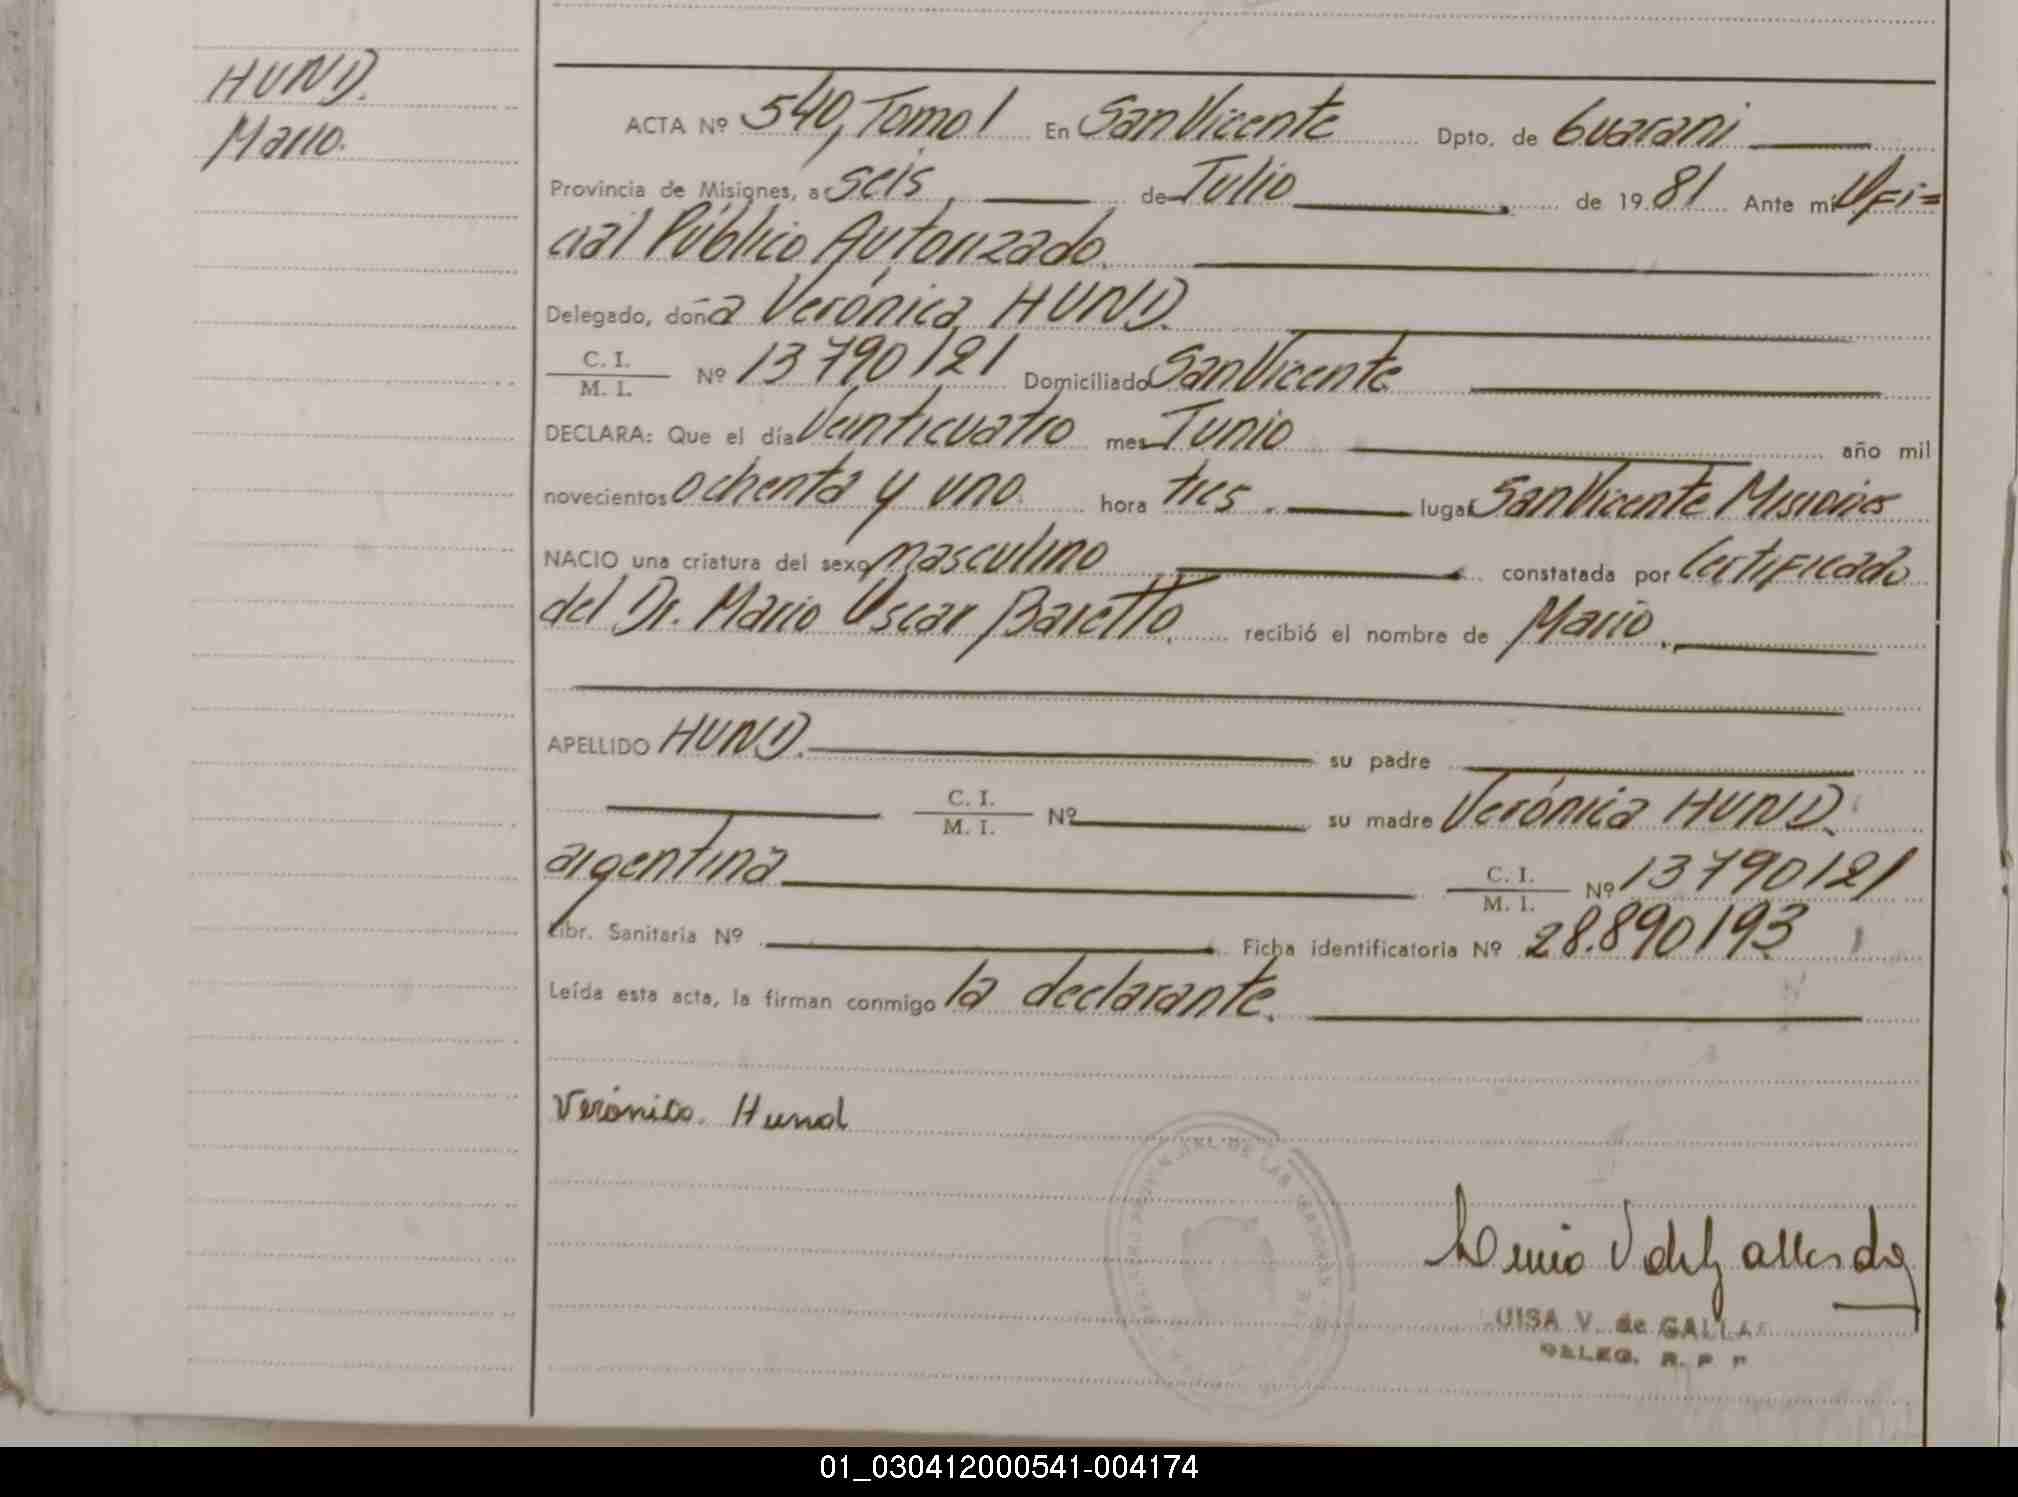 HUND.
Mario.
ACTA Nº 540, Tomo I En San Vicente Dpto. de Guaraní
Provincia de Misiones, a seis de Julio de 1981 Ante mí Ofi=
cial Público Autorizado.
Delegado, doña Verónica HUND.
C. I. / M. I. Nº 13790121 Domiciliado San Vicente
DECLARA: Que el día Veinticuatro mes Junio año mil
novecientos ochenta y uno. hora tres. lugar San Vicente Misiones
NACIO una criatura del sexo masculino constatada por Certificado
del Dr. Mario Oscar Baretto, recibió el nombre de Mario.
APELLIDO HUND. su padre
C. I. / M. I. Nº su madre Verónica HUND.
argentina C. I. / M. I. Nº 13790121
Libr. Sanitaria Nº Ficha identificatoria Nº 28.890193
Leída esta acta, la firman conmigo la declarante.
Verónica Hund
DE LAS PERSONAS
UISA V. de GALLA
DELEG. R. P. P
01_030412000541-004174